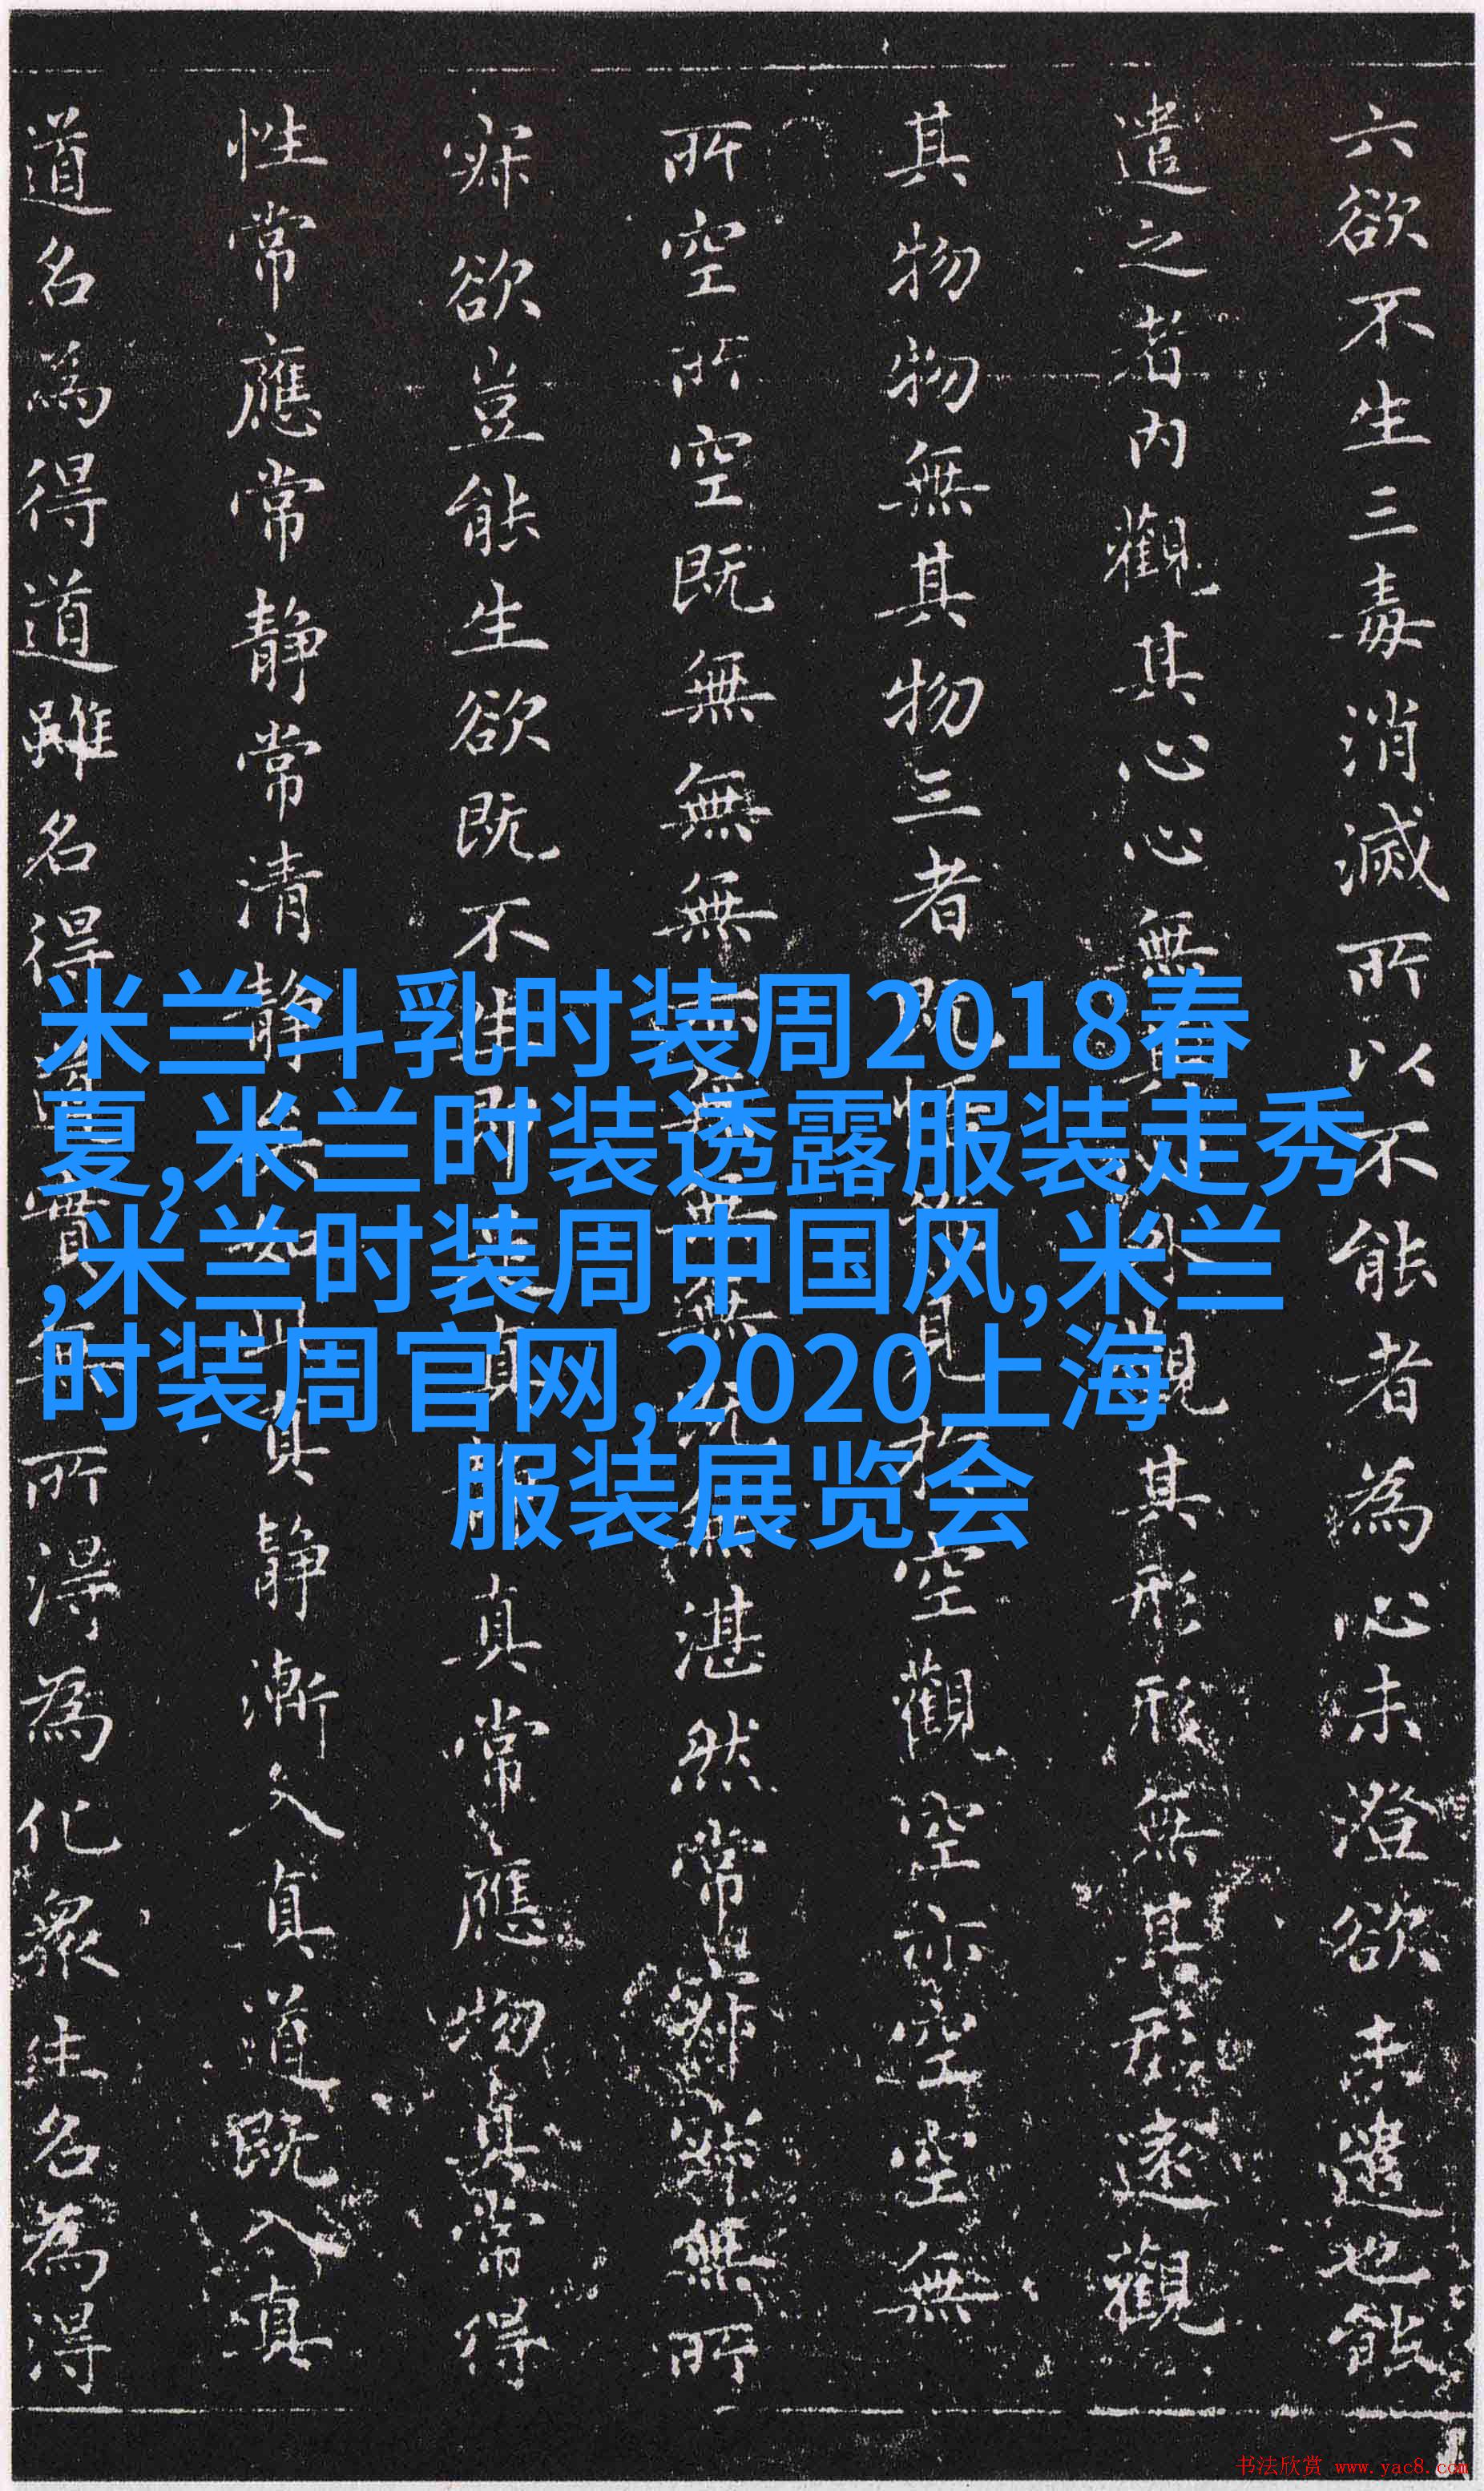 六欲不生三毒消滅所以不能者為心未澄欲未遣也能
遣之者内觀其心心無其心外觀其形形無其形遠觀
其物物無其物三者既悟唯見於空觀空亦空空無
所空所空既無無無亦無無無既無湛然常寂寂無所
寂欲豈能生欲既不生即是真静真常應物真常得
性常應常静常清静矣如此真静漸入真道既入真
道名為得道雖名得道實無所得為化衆生名為得
米兰斗乳时装周2018春
夏,米兰时装透露服装走秀
,米兰时装周中国风,米兰
时装周官网,2020上海
服装展览会
书法欣赏 www.yac8.com